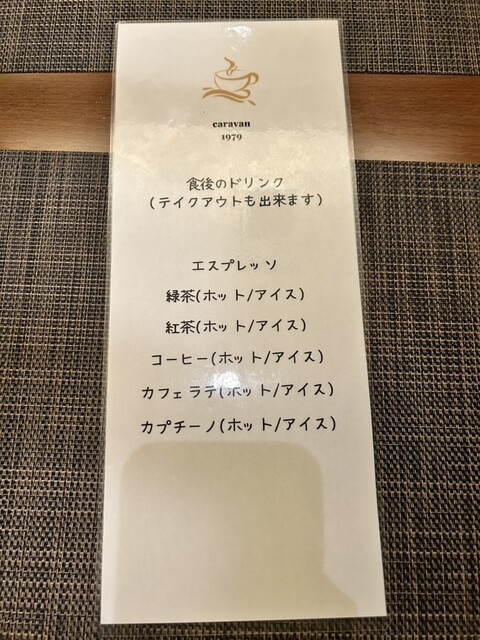 caravan
1979
食後のドリンク
(テイクアウトも出来ます)
エスプレッソ
緑茶(ホット/アイス)
紅茶(ホット/アイス)
コーヒー(ホット/アイス)
カフェラテ(ホット/アイス)
カプチーノ(ホット/アイス)